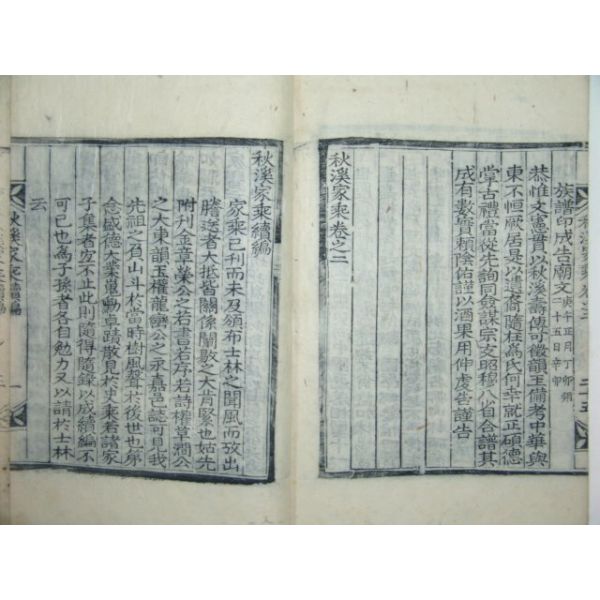 族譜印成告廟文
庚午正月丁卯朔
二十五日辛卯
恭惟文憲實以秋溪壽傳可徵韻玉備考中華與
東不恒厥居是以遺裔隨柱爲氏何幸就正碩德
當古禮當從先詢同僉謀宗支昭穆八自合譜其
成有數實賴陰佑謹以酒果用伸虔告謹告
秋溪家乘卷之二
秋溪家乘續編
家乘已刊而未及頒布士林之聞風而攷出
謄送者大抵皆關係闡敭之大肯綮也姑先
附刊金章榮公之若書若序若詩權草澗公
之大東韻玉權龍巒公之永嘉邑誌可見我
先祖之負山斗於當時樹風聲於後世也第
念盛德大業巢勳卓蹟散見於史乘若諸家
子集者室不止此則隨得隨錄以成續編不
可已也爲子孫者各自勉力又以請於士林
云
二十五
秋溪家乘續編
一